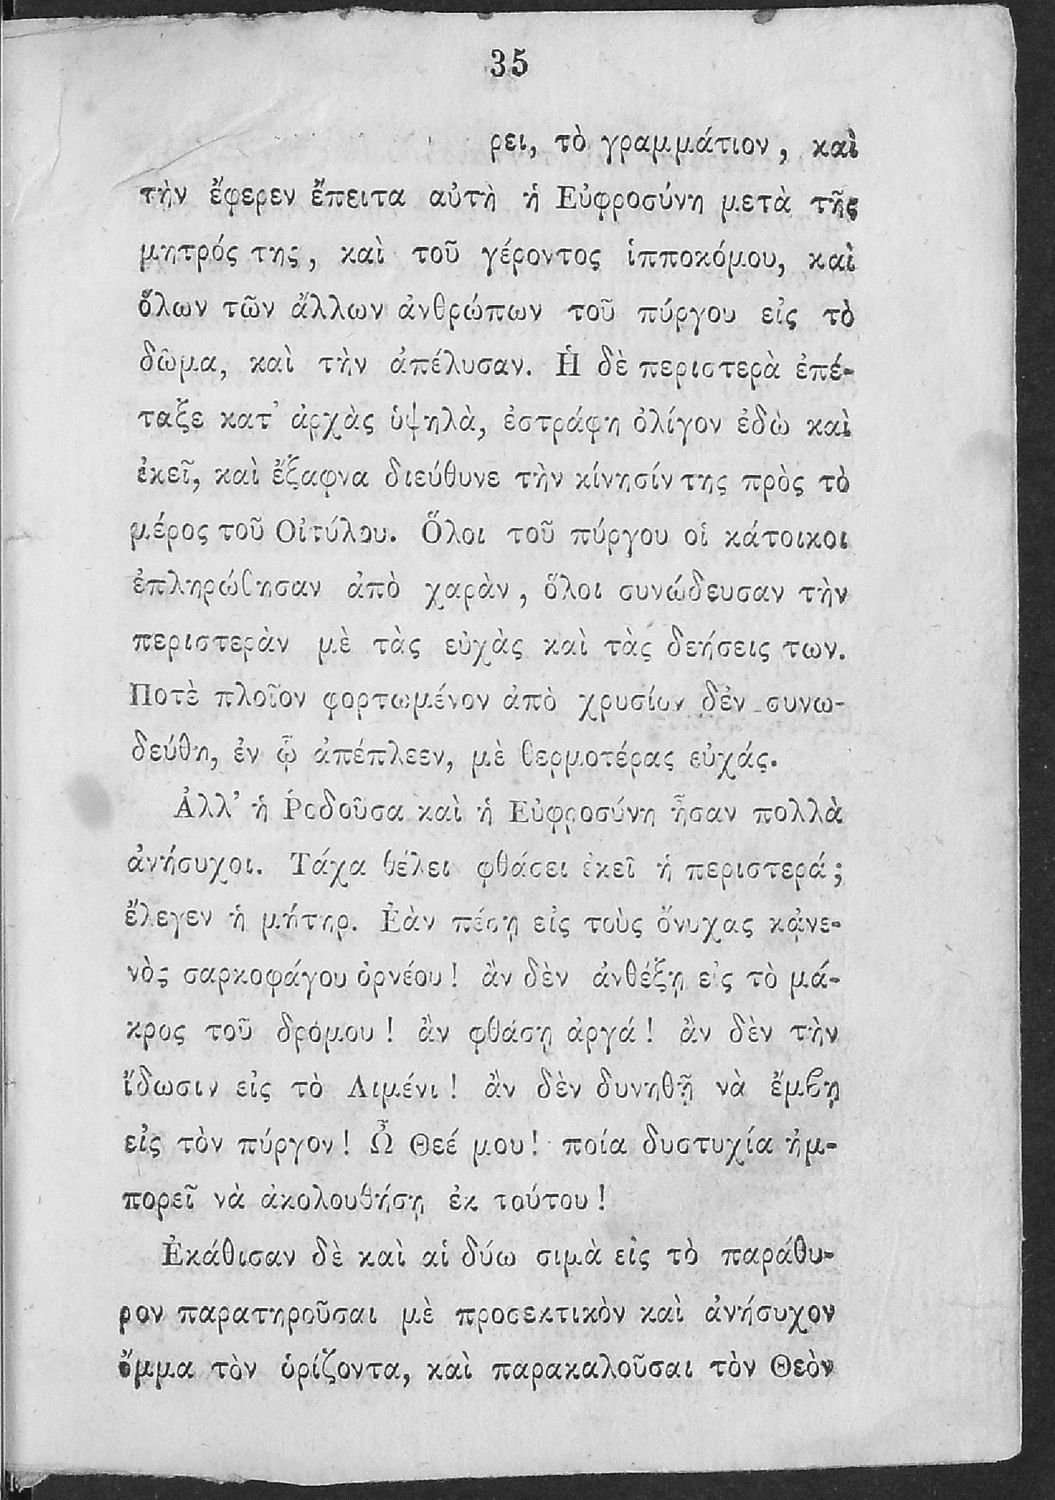 35
ρει, τὸ γραμμάτιον, καὶ
τὴν ἔφερεν ἔπειτα αὐτὴ ἡ Εὐφροσύνη μετὰ τῆς
μητρός της, καὶ τοῦ γέροντος ἱπποκόμου, καὶ
ὅλων τῶν ἄλλων ἀνθρώπων τοῦ πύργου εἰς τὸ
δῶμα, καὶ τὴν ἀπέλυσαν. Ἡ δὲ περιστερὰ ἐπέ-
ταξε κατ’ ἀρχὰς ὑψηλὰ, ἐστράφη ὀλίγον ἐδὼ καὶ
ἐκεῖ, καὶ ἔξαφνα διεύθυνε τὴν κίνησίν της πρὸς τὸ
μέρος τοῦ Οἰτύλου. Ὅλοι τοῦ πύργου οἱ κάτοικοι
ἐπληρώθησαν ἀπὸ χαρὰν, ὅλοι συνώδευσαν τὴν
περιστερὰν μὲ τὰς εὐχὰς καὶ τὰς δεήσεις των.
Ποτὲ πλοῖον φορτωμένον ἀπὸ χρυσίον δὲν συνω-
δεύθη, ἐν ᾧ ἀπέπλεεν, μὲ θερμοτέρας εὐχάς.
Ἀλλ’ ἡ Ῥοδοῦσα καὶ ἡ Εὐφροσύνη ἦσαν πολλὰ
ἀνήσυχοι. Τάχα θέλει φθάσει ἐκεῖ ἡ περιστερά;
ἔλεγεν ἡ μήτηρ. Ἐὰν πέσῃ εἰς τοὺς ὄνυχας κᾀνε-
νὸς σαρκοφάγου ὀρνέου! ἂν δὲν ἀνθέξῃ εἰς τὸ μά-
κρος τοῦ δρόμου! ἂν φθάσῃ ἀργά! ἂν δὲν τὴν
ἴδωσιν εἰς τὸ Λιμένι! ἂν δὲν δυνηθῇ νὰ ἔμβῃ
εἰς τὸν πύργον! Ὦ Θεέ μου! ποία δυστυχία ἠμ-
πορεῖ νὰ ἀκολουθήσῃ ἐκ τούτου!
Ἐκάθισαν δὲ καὶ αἱ δύω σιμὰ εἰς τὸ παράθυ-
ρον παρατηροῦσαι μὲ προσεκτικὸν καὶ ἀνήσυχον
ὄμμα τὸν ὁρίζοντα, καὶ παρακαλοῦσαι τὸν Θεὸν